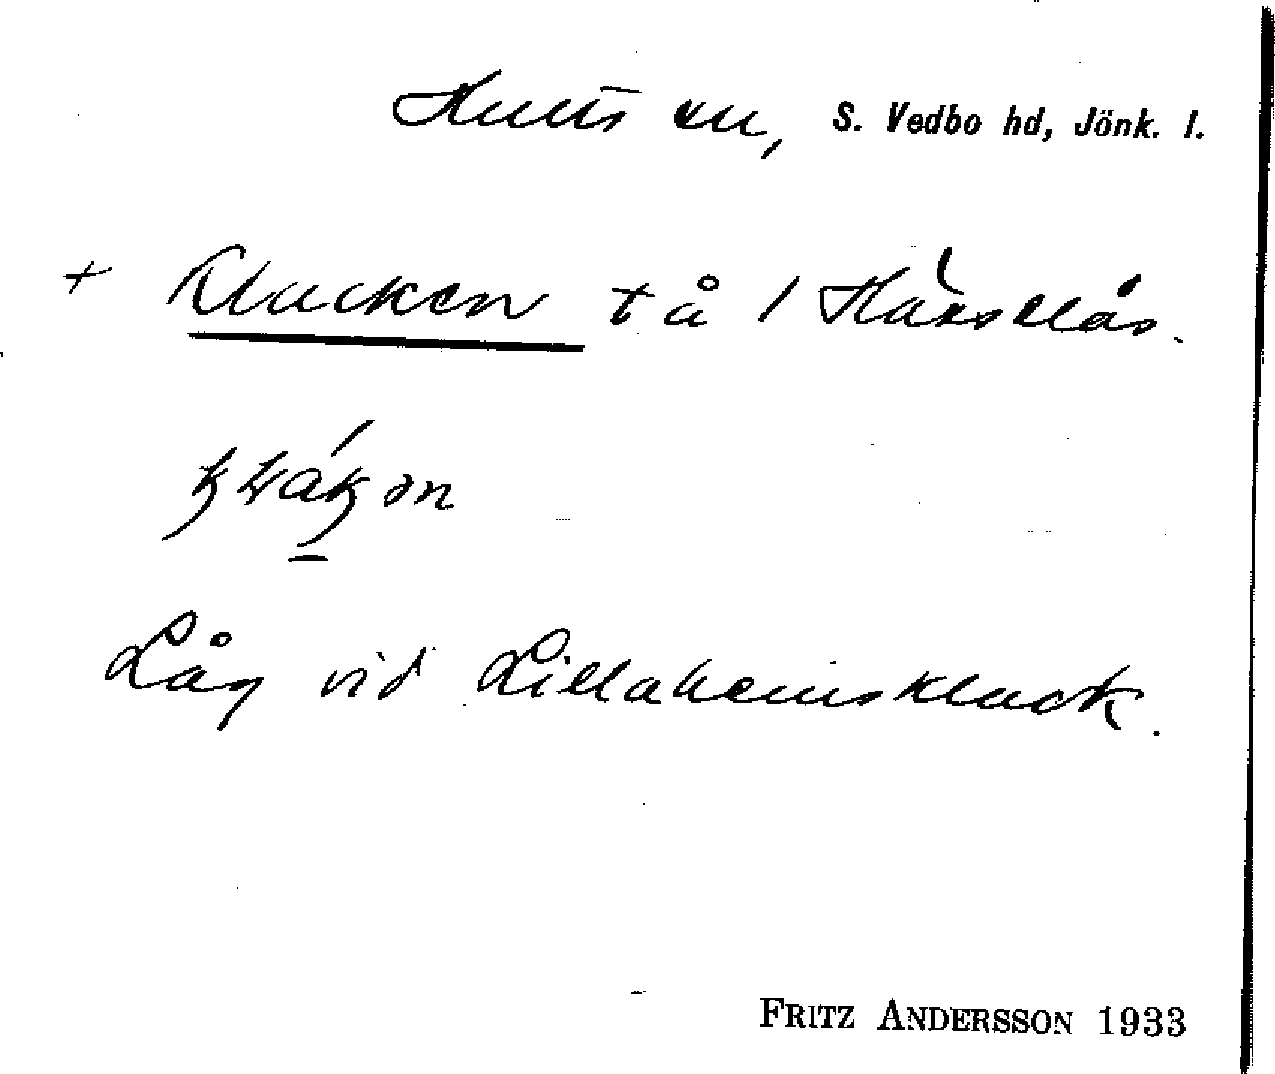 Hults sn, S. Vedbo hd, Jönk. l.
+ Klacken tå / Härsklås.
Låg vid Lillahemsklack.
FRITZ ANDERSSON 1933